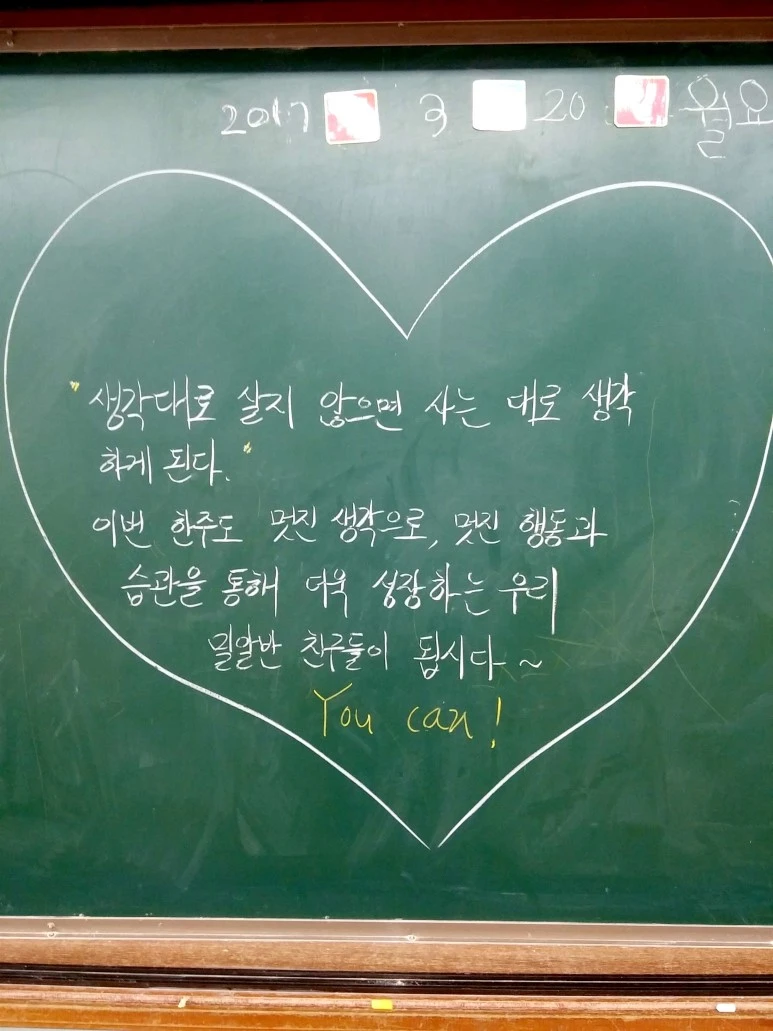 2017 3 20 월요
"생각대로 살지 않으면 사는 대로 생각
하게 된다."
이번 한주도 멋진 생각으로, 멋진 행동과
습관을 통해 더욱 성장하는 우리
밀알반 친구들이 됩시다~
You can!